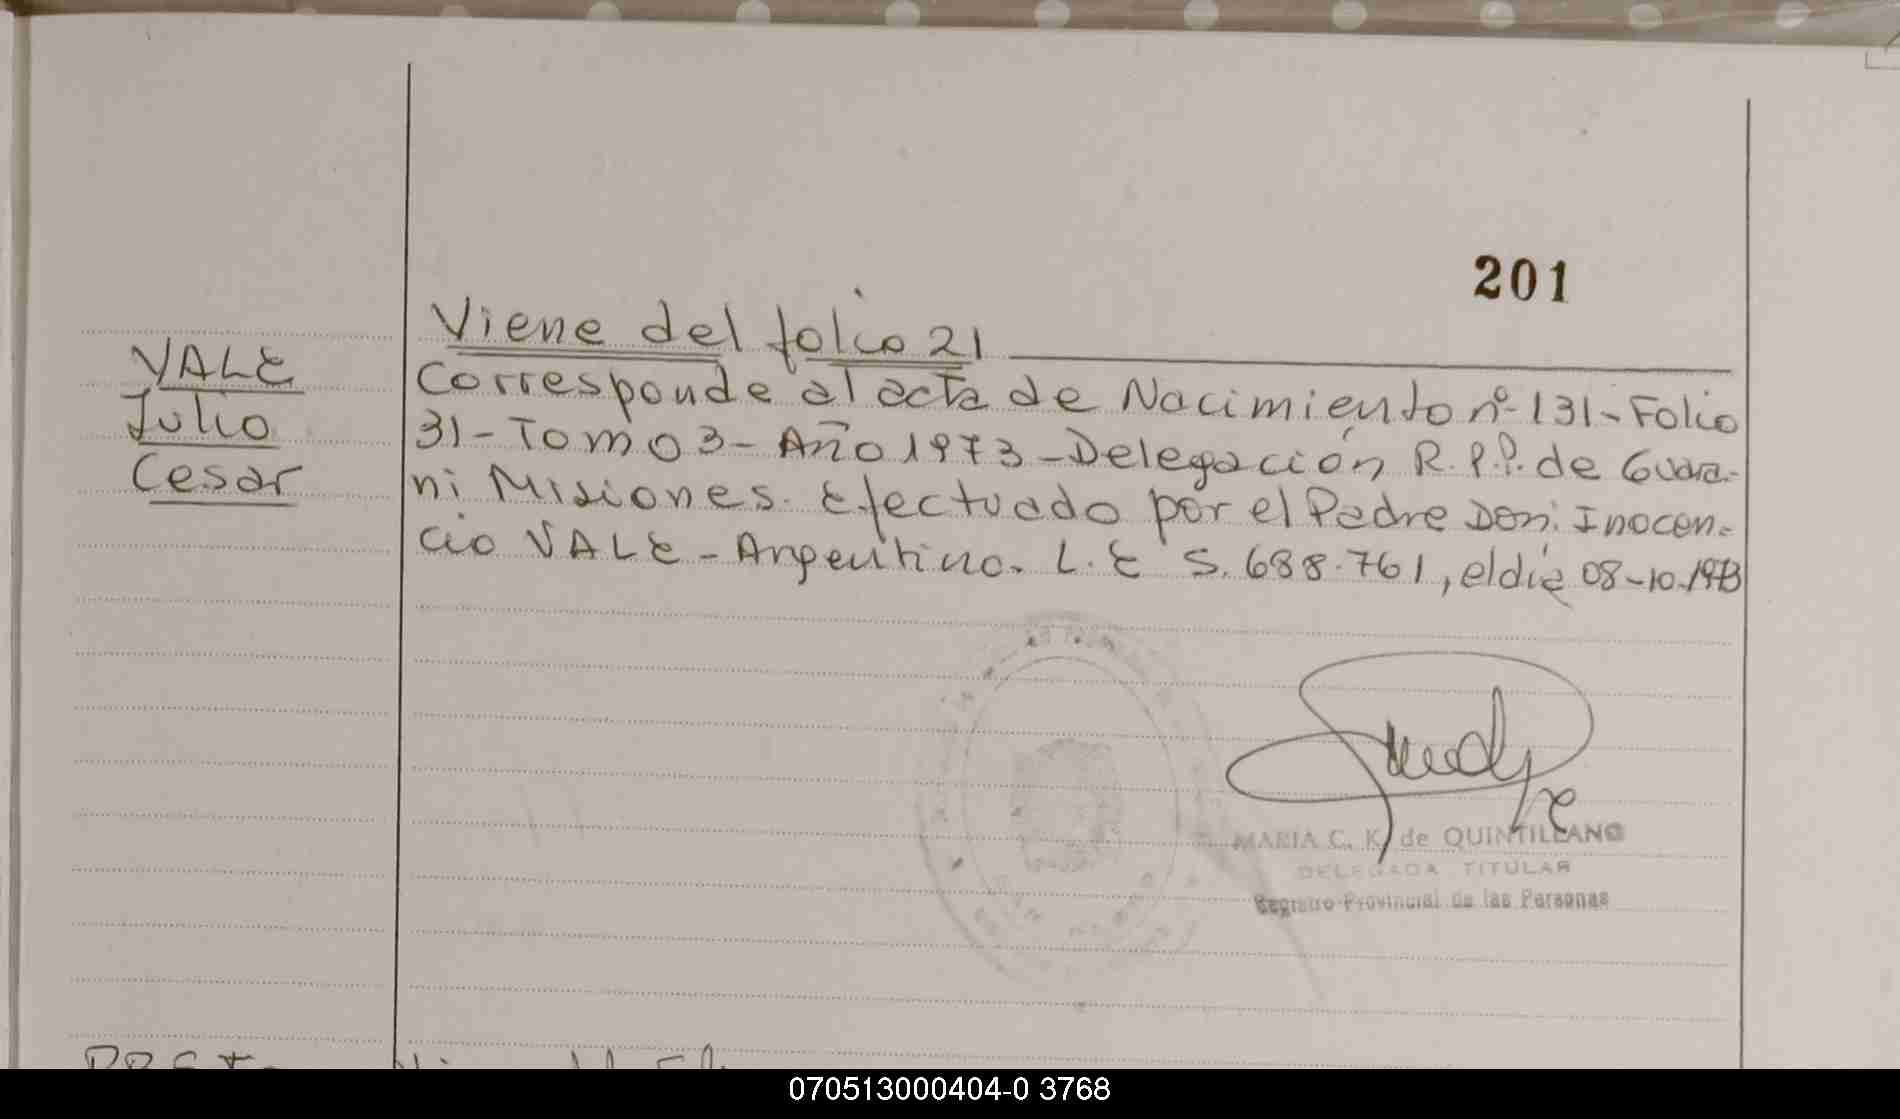 201
VALE
Julio
Cesar
Viene del folio 21
Corresponde al acta de Nacimiento nº 131-Folio
31-Tomo 3-Año 1973-Delegación R.P.P. de Guara-
ni Misiones. Efectuado por el Padre Don: Inocen-
cio VALE-Argentino. L.E 5.688.761, el día 08-10-1973
MARIA C. K. de QUINTILLANO
DELEGADA TITULAR
Registro Provincial de las Personas
070513000404-0 3768